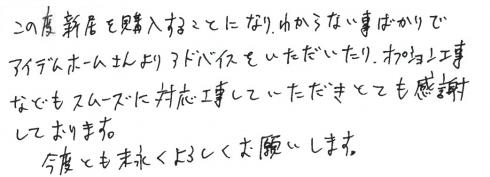 この度新居を購入することになり、わからない事ばかりで
アイデムホームさんよりアドバイスをいただいたり、オプション工事
などもスムーズに対応工事していただきとても感謝
しております。
今度とも末永くよろしくお願いします。